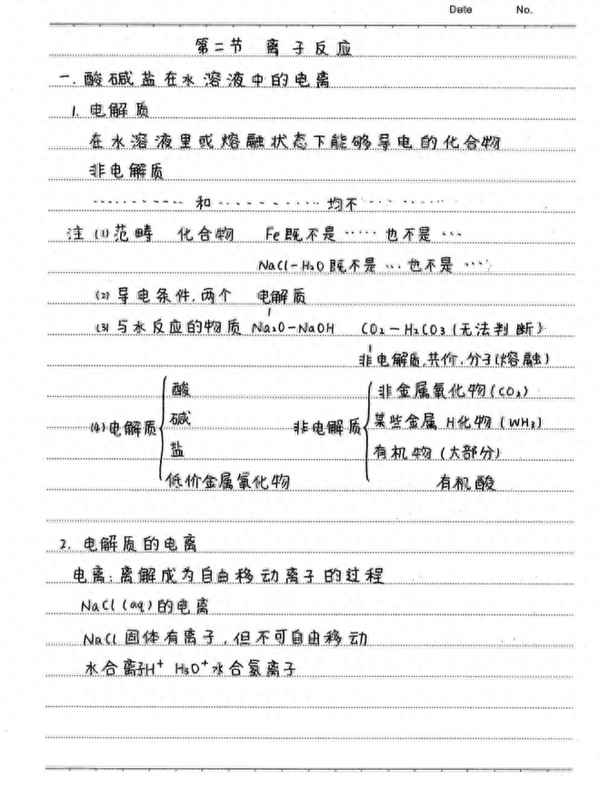 Date No.
第二节 离子反应
一. 酸碱盐在水溶液中的电离
1. 电解质
在水溶液里或熔融状态下能够导电的化合物
非电解质
………… 和 ………… 均不 …………
注 (1) 范畴 化合物 Fe既不是 …… 也不是 …
NaCl-H2O既不是 … 也不是 …
(2) 导电条件, 两个 电解质
(3) 与水反应的物质 Na2O-NaOH CO2-H2CO3 (无法判断)
非电解质, 共价, 分子(熔融)
酸 非金属氧化物(CO2)
碱 某些金属 H化物 (WH3)
(4) 电解质 非电解质
盐 有机物 (大部分)
低价金属氧化物 有机酸
2. 电解质的电离
电离: 离解成为自由移动离子的过程
NaCl (aq) 的电离
NaCl 固体有离子, 但不可自由移动
水合离子H+ H3O+ 水合氢离子